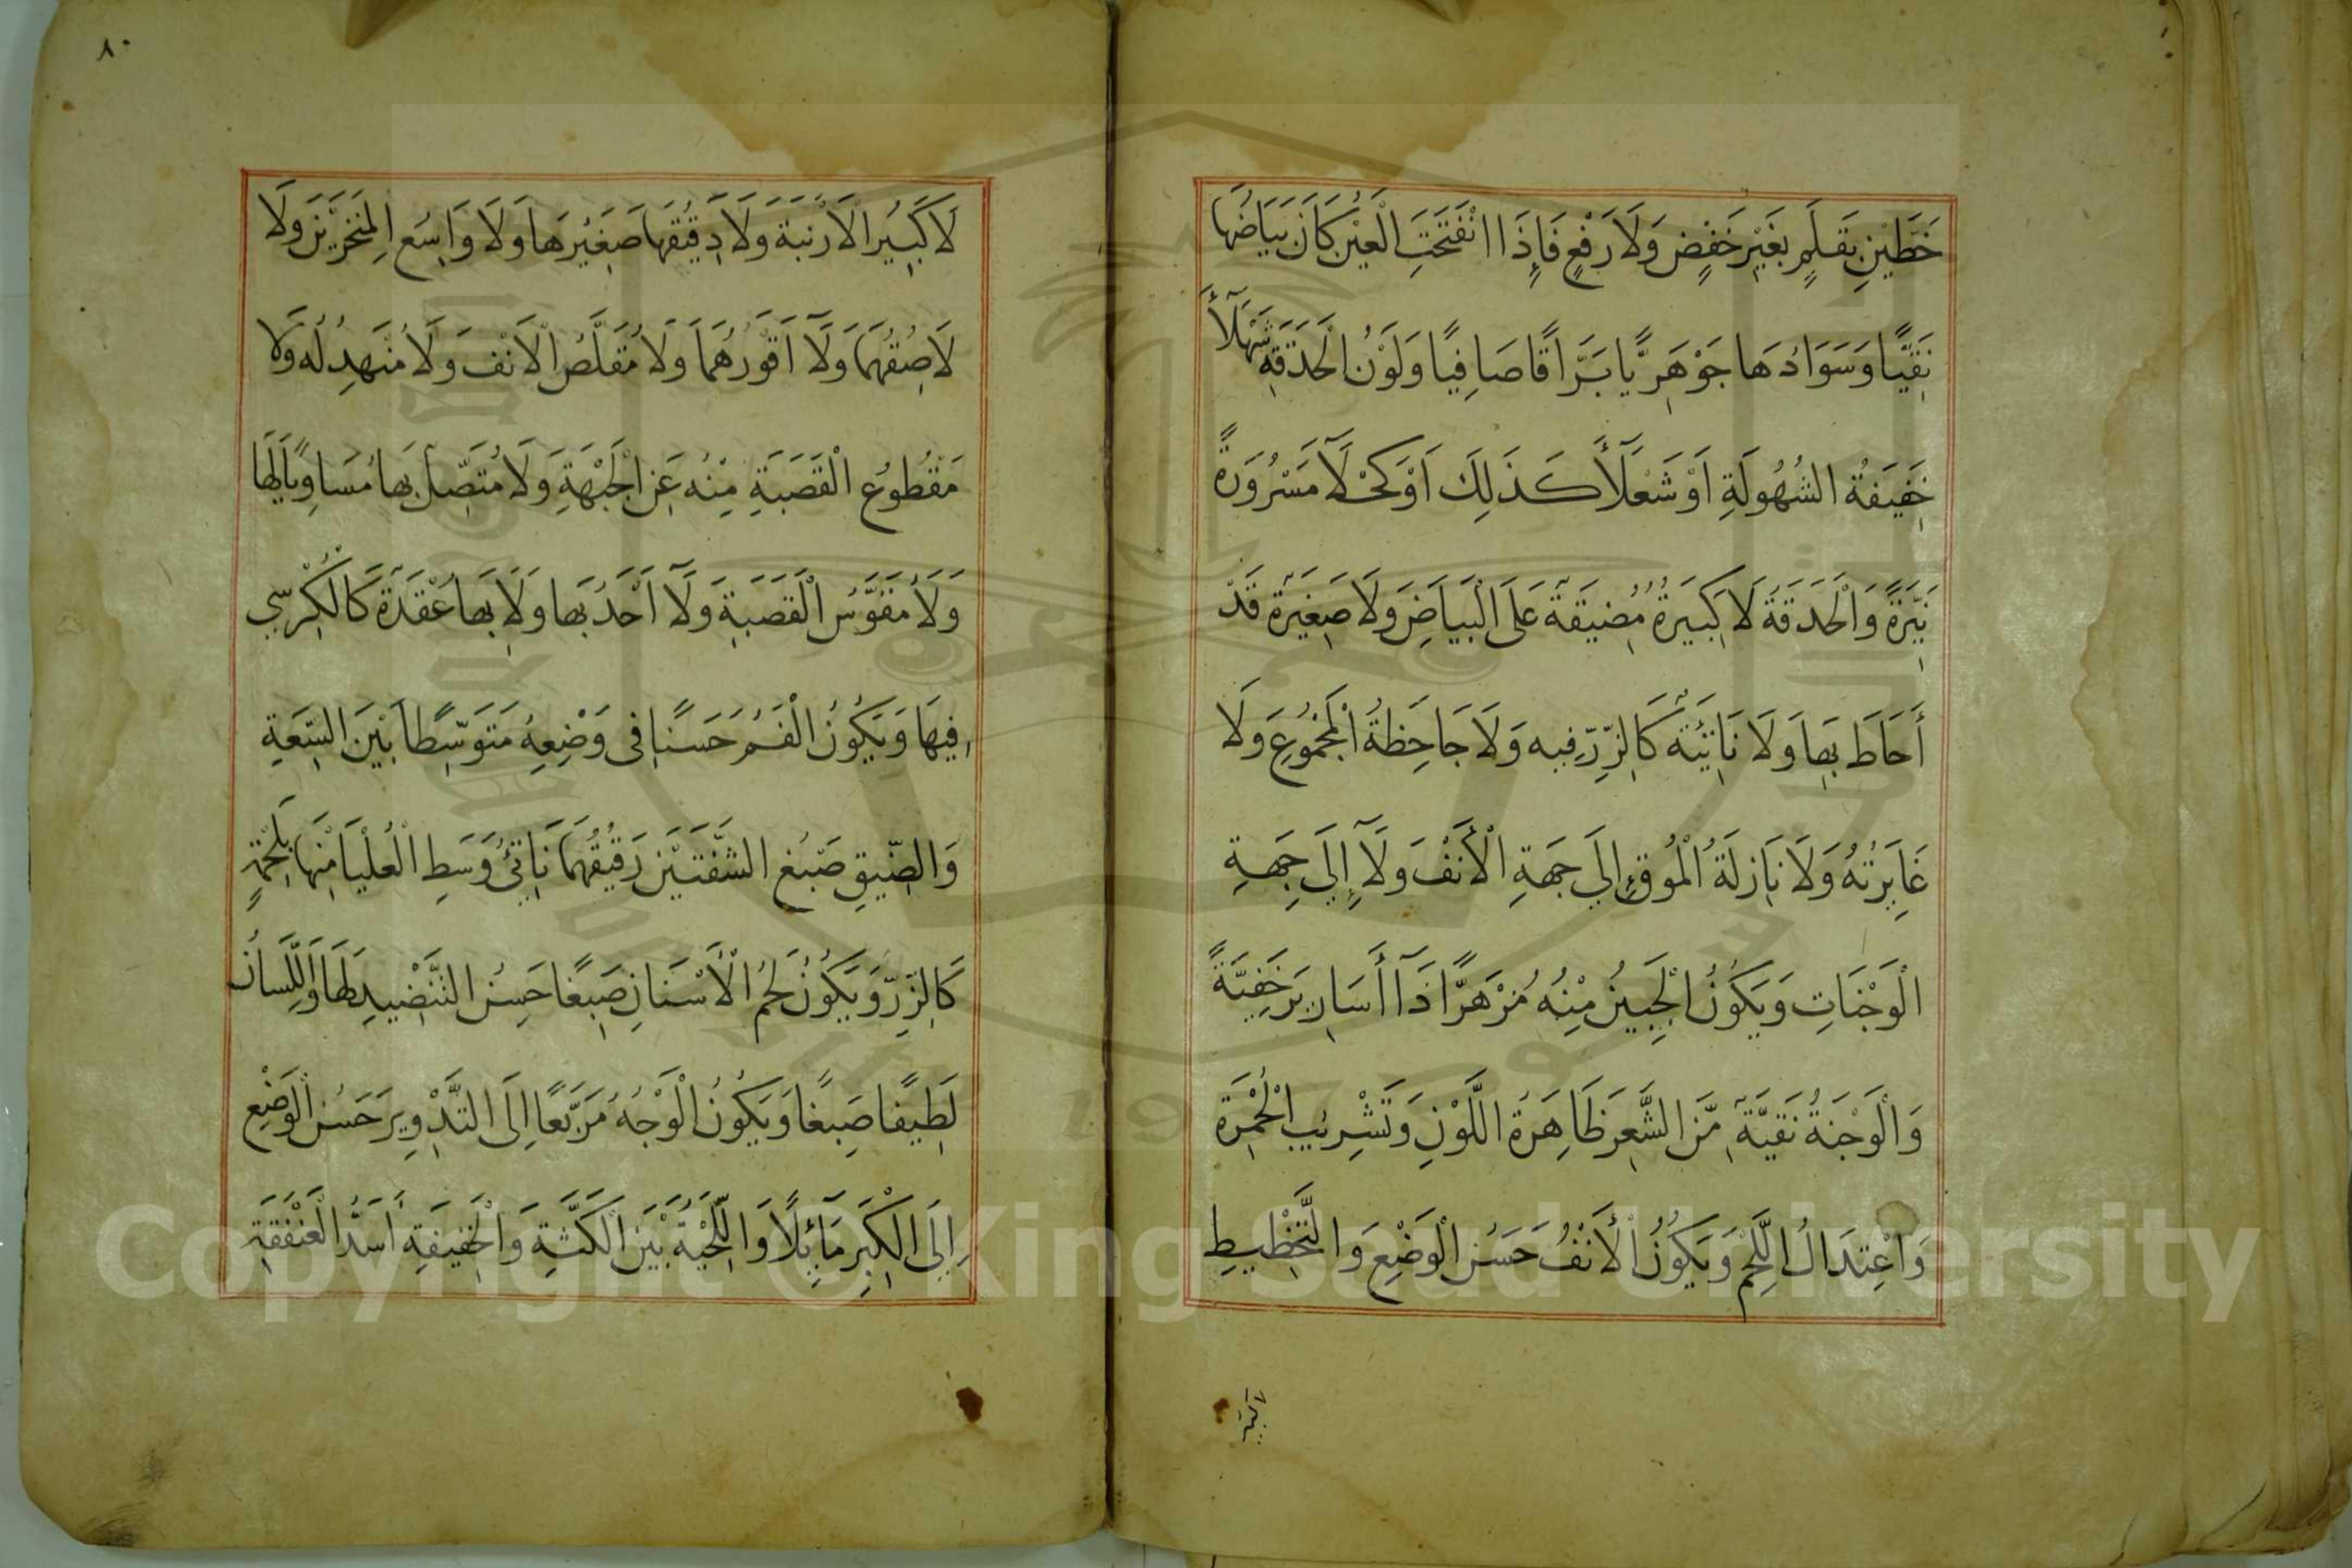 خَطَّيْنِ بِقَلَمٍ بِغَيْرِ خَفْضٍ وَلَا رَفْعٍ فَإِذَا انْفَتَحَتِ الْعَيْنُ كَانَ بَيَاضُهَا
نَقِيًّا وَسَوَادُهَا جَوْهَرِيًّا بَرَّاقًا صَافِيًا وَلَوْنُ الْحَدَقَةِ شَهْلَآءَ
خَفِيفَةُ الشُّهُولَةِ اَوْ شَعْلَآءَ كَذَلِكَ اَوْ كَحْلَآ مَسْرُوَرةً
نَيِّرَةً وَالْحَدَقَةُ لَا كَبِيرَةُ مُضِيقَةً عَلَى الْبَيَاضِ وَلَا صَغِيَرةً قَدْ
أَحَاطَ بِهَا وَلَا نَاتِئَةً كَالزِّرِّ فِيهِ وَلَا جَاحِظَةُ الْمَجْمُوعِ وَلَا
غَايِرَتُهُ وَلَا نَازِلَةُ الْمُوقِ إِلَي جِهَةِ الْأَنْفِ وَلَآ إِلَي جِهَةِ
الْوَجْنَاتِ وَيَكُونُ الْجَبِينُ مِنْهُ مُزْهَرًّا ذَآ أَسَارِيرَ خَفِيَّةً
وَالْوَجْنَةُ نَقِيَّةً مِّنَ الشَّعَرِ ظَاهِرَةُ اللَّوْنِ وَتَشْرِيبِ الْحُمْرَةِ
وَاعْتِدَالُ اللَّحْمِ وَيَكُونُ الْأَنْفُ حَسَنُ الْوَضْعِ وَالتَّخْطِيطِ
لا كبير
٨٠
لَا كَبِيُر الْاَرْنَبَةِ وَلَا دَقِيقُهَا صَغِيُرهَا وَلَا وَاسِعُ الْمِنْخَرَيْنِ وَلَا
لَاصِقُهُمَا وَلَآ اَقْوَرُهُمَا وَلَا مُقَلَّصُ الْاَنْفِ وَلَا مُنْهَدِلُه وَلَا
مَقْطُوعُ الْقَصَبَةِ مِنْهُ عَنِ الْجَبْهَةِ وَلَا مُتَّصِلٌ بِهَا مُسَاوِيًا لَهَا
وَلَا مُقَوَّسُ الْقَصَبَةِ وَلَآ اَحْدَبُهَا وَلَا بِهَا عُقْدَةً كَالْكُرْسِي
فِيهَا وَيَكُونُ الْفَمُ حَسَنًا فِى وَضْعِهِ مُتَوَسِّطًا بَيْنَ السَّعَةِ
وَالضِّيقِ صَبْغُ الشَّفَتَيْنِ رَقِيقُهُمَا نَاتِئُ وَسَطِ الْعُلْيَا مِنْهَا بِلَحْمَةٍ
كَالزِّرِّ وَيَكُونُ لَحْمُ الْأَسْنَانِ صَبِغًا حَسِنُ التَّنْضِيدِ لَهَا وَاللِّسَانُ
لَطِيفًا صَبِغًا وَيَكُونُ الْوَجْهُ مُرَبَّعًا اِلَى التَّدْوِيرِ حَسَنُ الْوَضْعِ
إِلَي الْكِبَرِ مَآئِلًا وَاللِّحْيَةُ بَيْنَ الْكَثَّةِ وَالْخَفِيفَةِ أَسَدُّ الْعَنْفَقَةِ